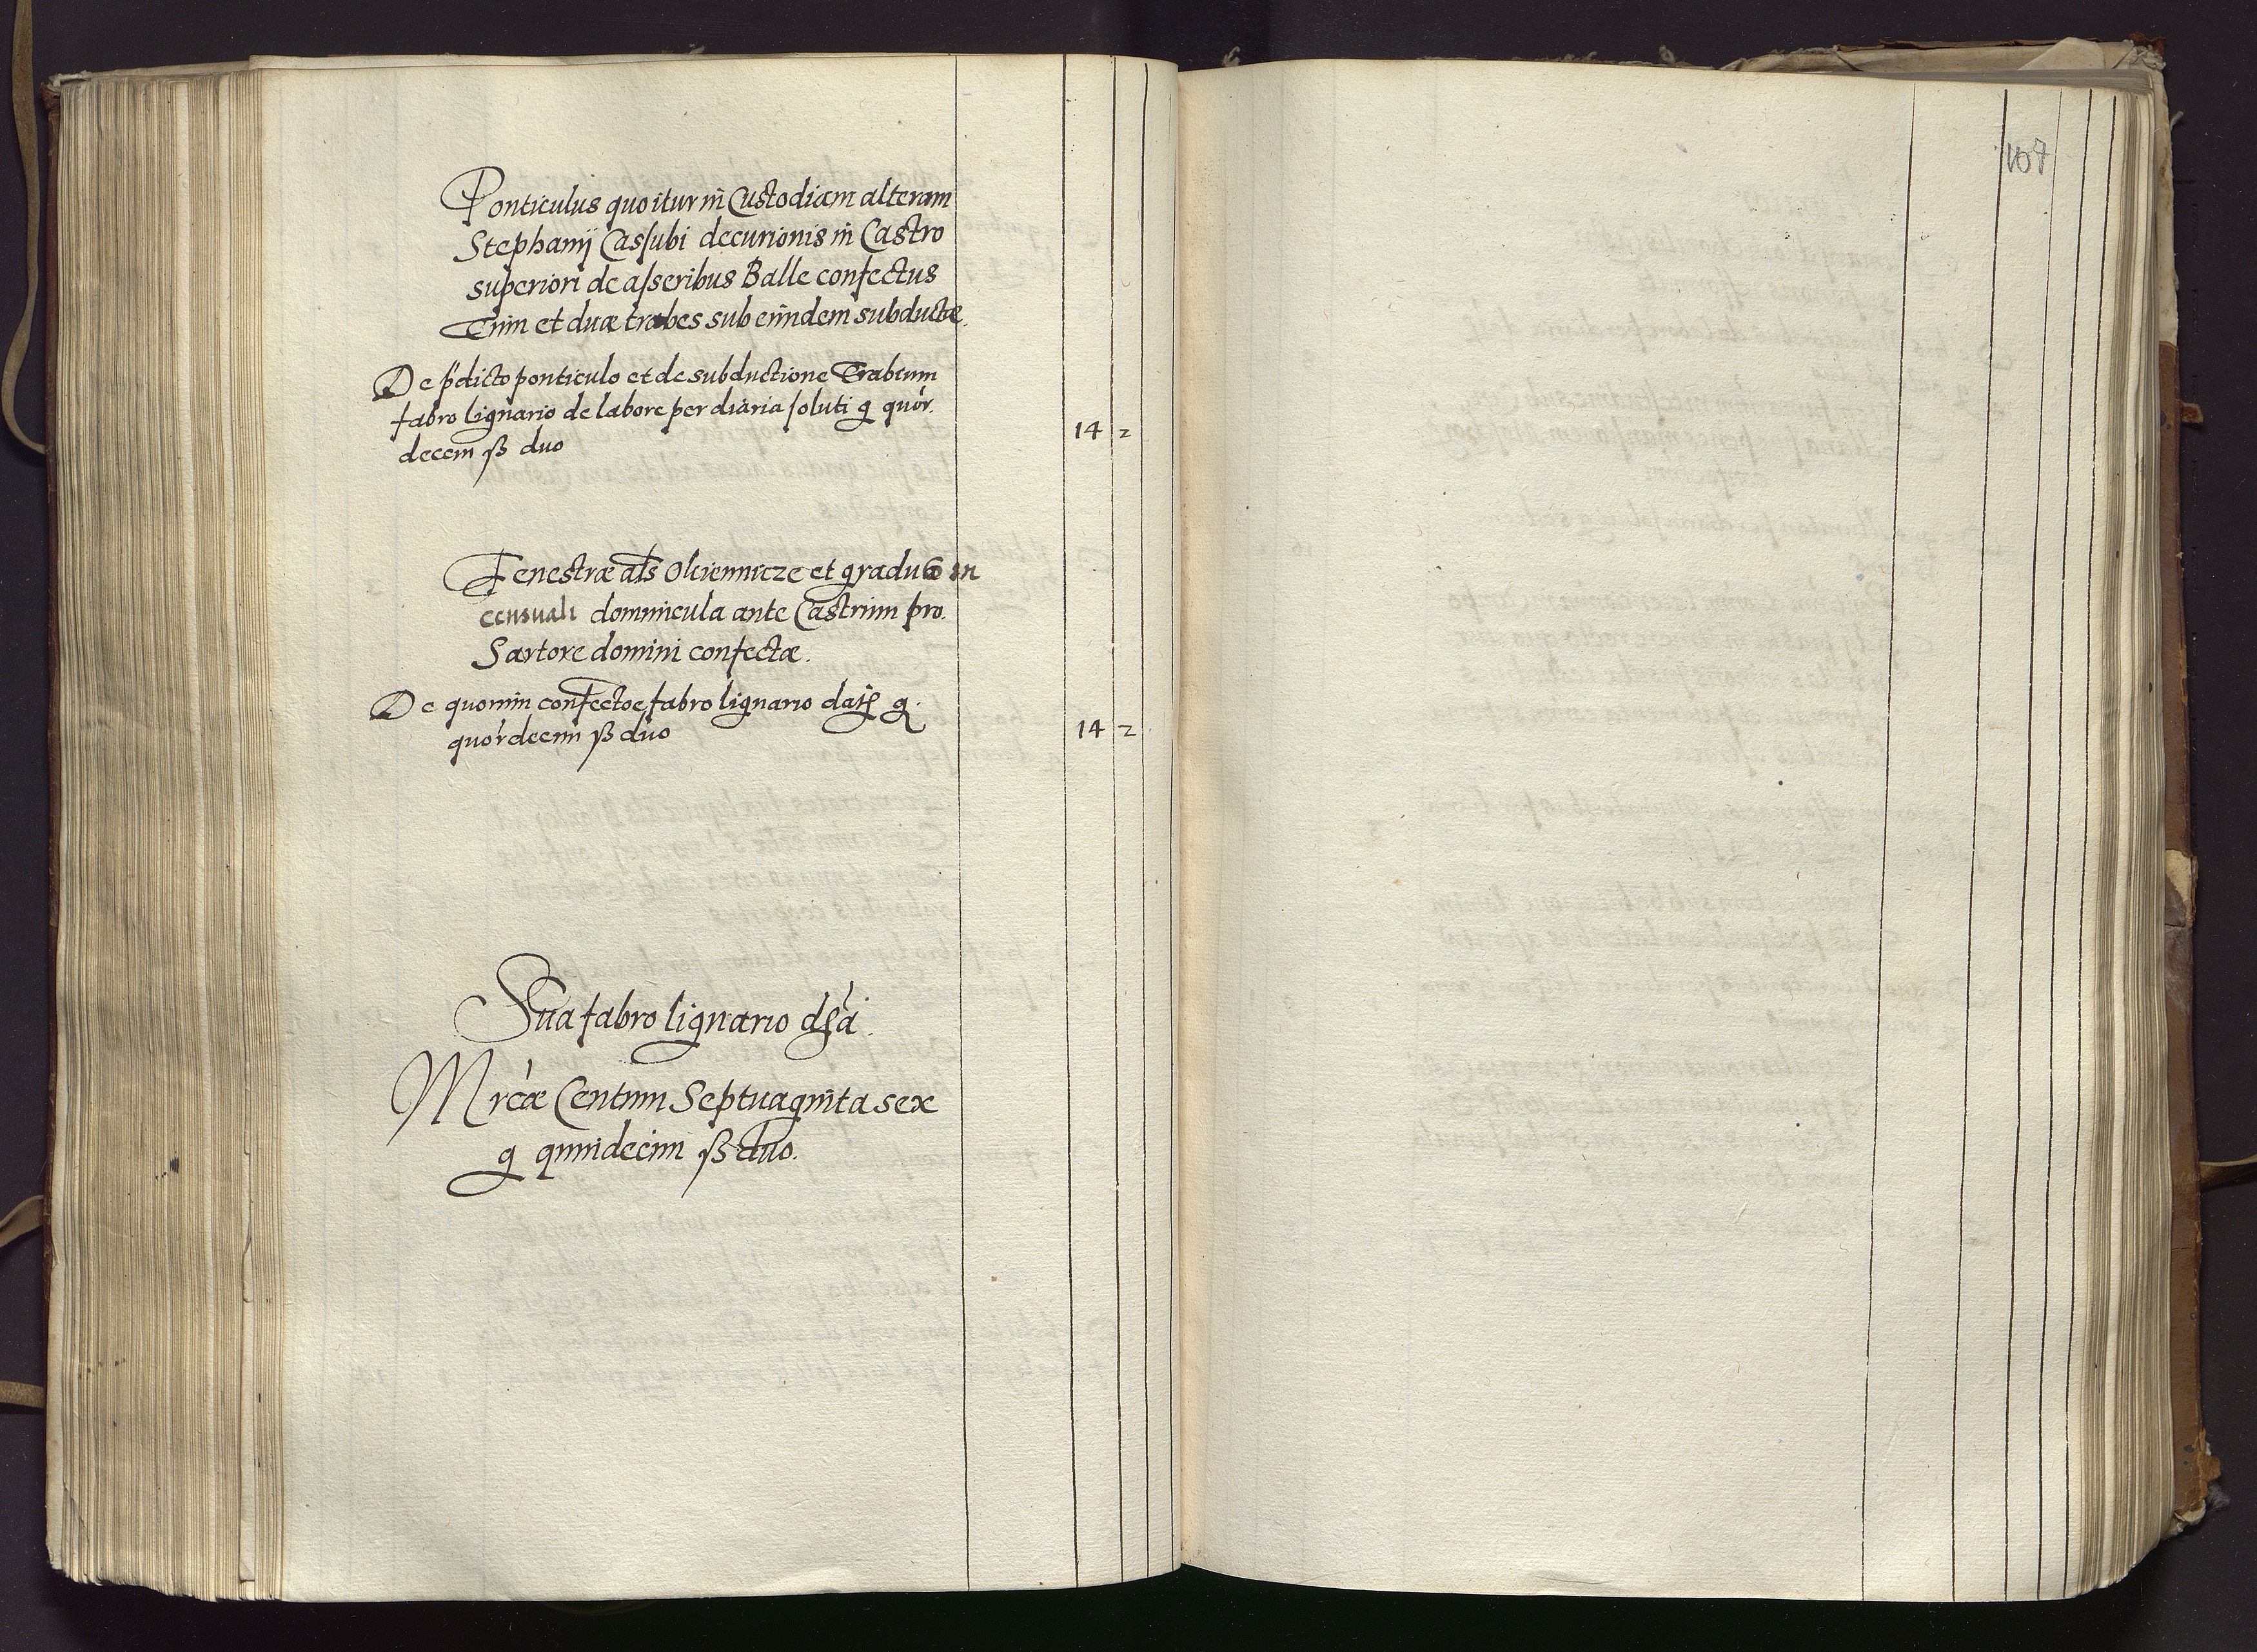 Ponticulus quo itur in Custodiam alteram
Stephanij Cassubi decurionis in Castro
superiori de asseribus Balle confectus
Tum et duæ trabes sub eundem subductæ.
De p̈dicto ponticulo et de subductione Trabium
fabro lignario de labore per diaria soluti g quor̀.
decem ß duo 14 2
Fenestræ als Okiennicze et gradus in
censuali domuncula ante Castrum pro.
Sartore domini confectæ.
De quorum confectõe fabro lignario g.
quor̀decim ß duo 14 2
Sũa fabro lignario
Mrcæ Centum Septuaginta sex
g quindecim ß duo.
107